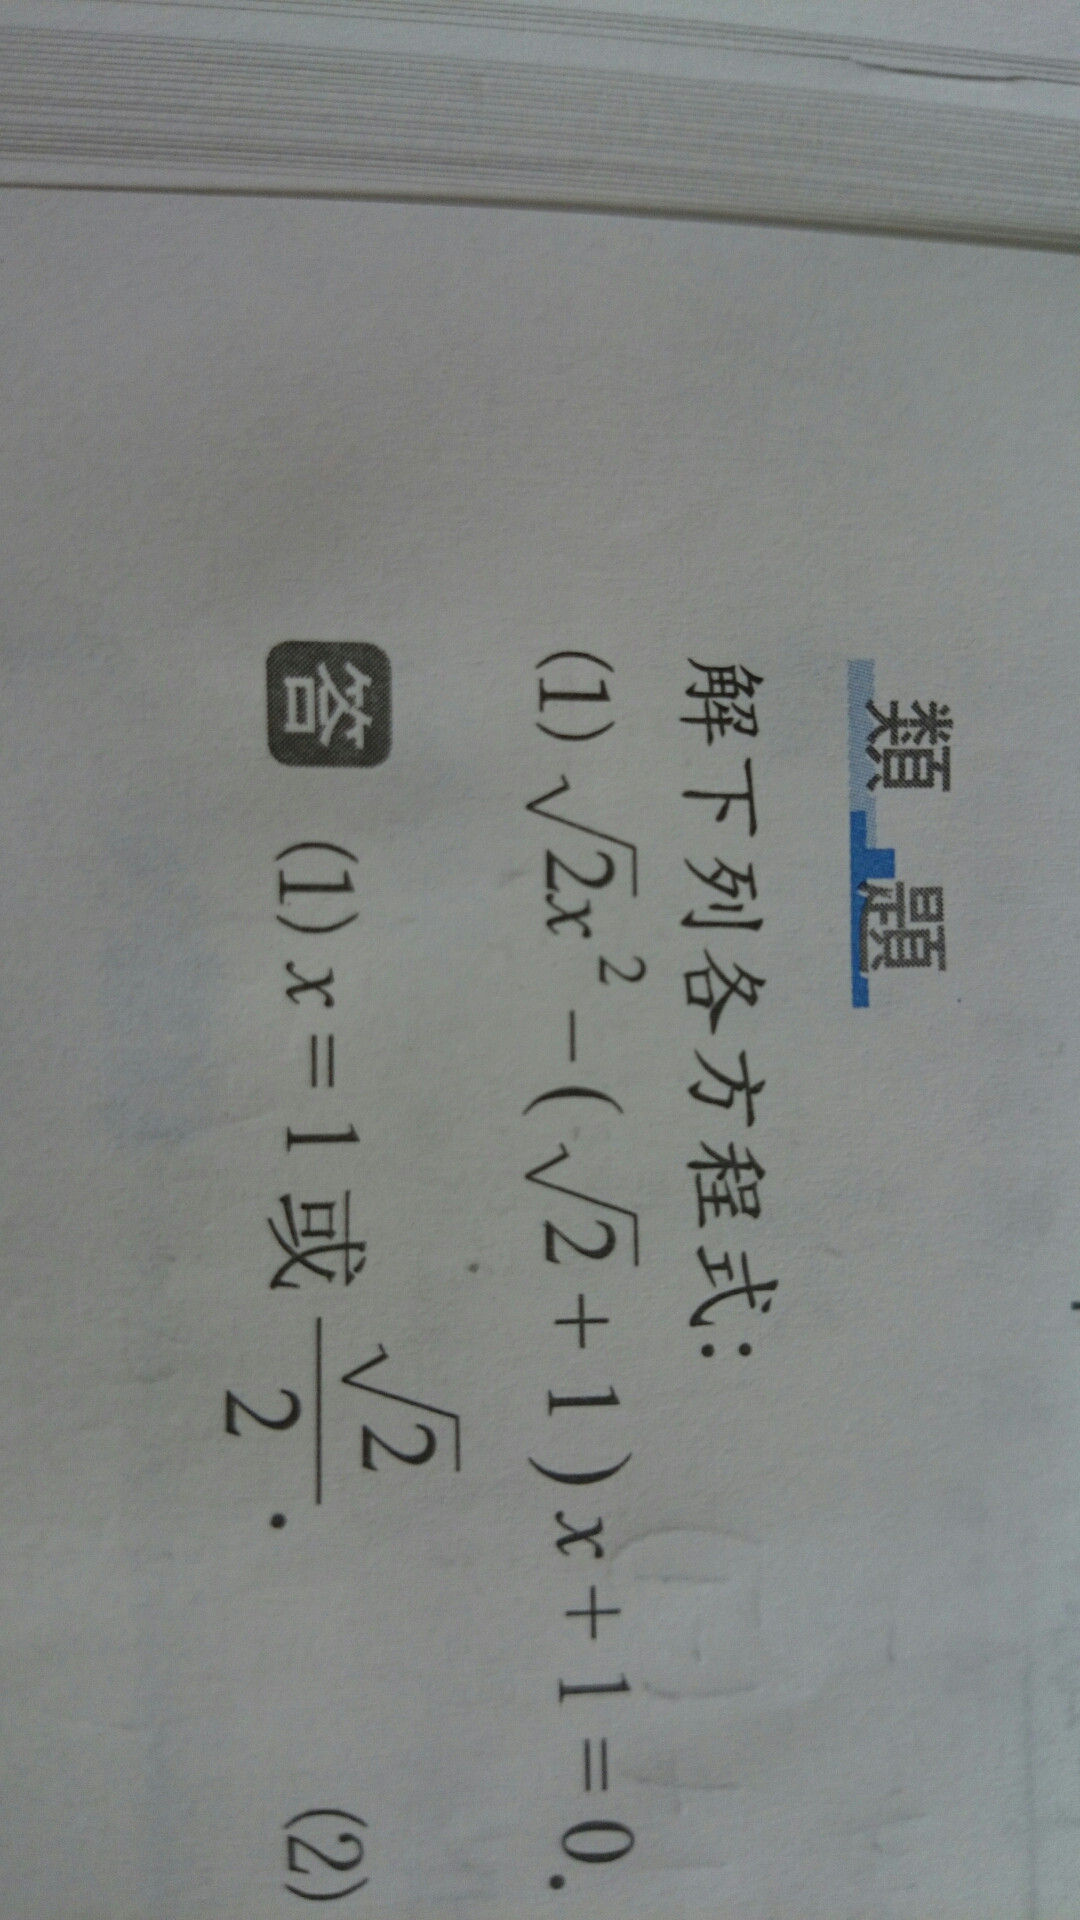 類題
解下列各方程式:
(1) √2x² − (√2 + 1)x + 1 = 0.
答 (1) x = 1 或 √2/2. (2)